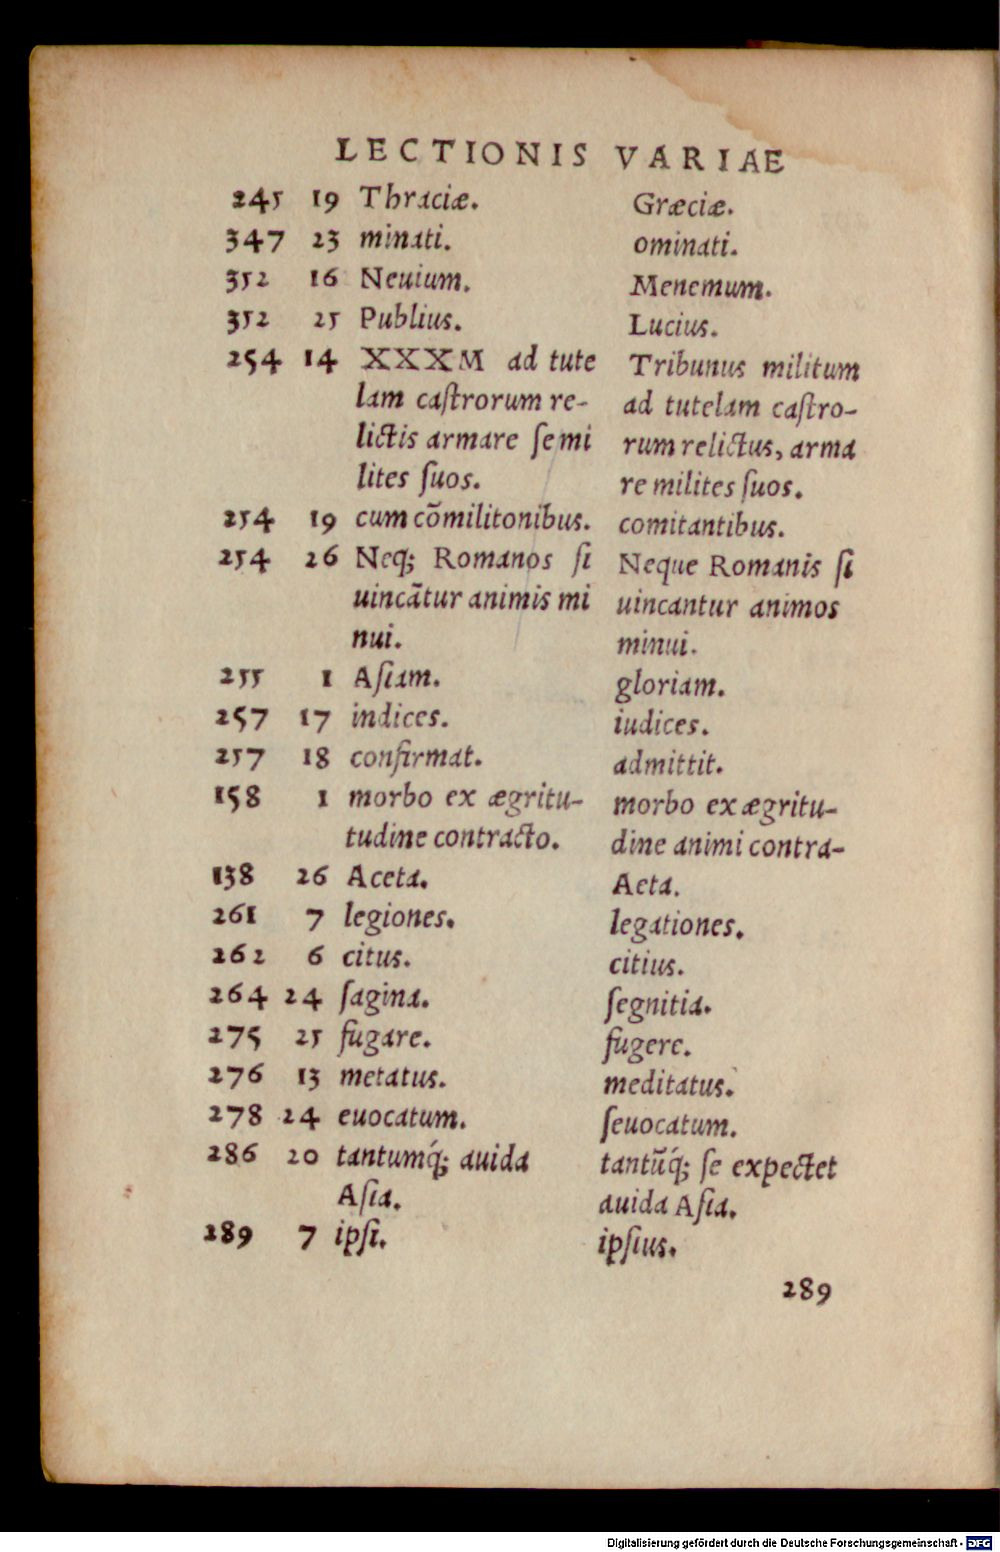 LECTIONIS VARIAE
245 19 Thraciæ. Græciæ.
347 23 minati. ominati.
352 16 Neuium. Menemum.
352 25 Publius. Lucius.
254 14 XXXM ad tute Tribunus militum
lam caſtrorum re- ad tutelam caſtro-
lictis armare ſe mi rum relictus, arma
lites ſuos. re milites ſuos.
254 19 cum cõmilitonibus. comitantibus.
254 26 Neq; Romanos ſi Neque Romanis ſi
uincãtur animis mi uincantur animos
nui. minui.
255 1 Aſiam. gloriam.
257 17 indices. iudices.
257 18 confirmat. admittit.
158 1 morbo ex ægritu- morbo ex ægritu-
tudine contracto. dine animi contra-
138 26 Aceta. Acta.
261 7 legiones. legationes.
262 6 citus. citius.
264 24 ſagina. ſegnitia.
275 25 fugare. fugere.
276 13 metatus. meditatus.
278 24 euocatum. ſeuocatum.
286 20 tantumq́; auida tantũq́; ſe expectet
Aſia. auida Aſia.
289 7 ipſi. ipſius.
289
Digitalisierung gefördert durch die Deutsche Forschungsgemeinschaft - DFG